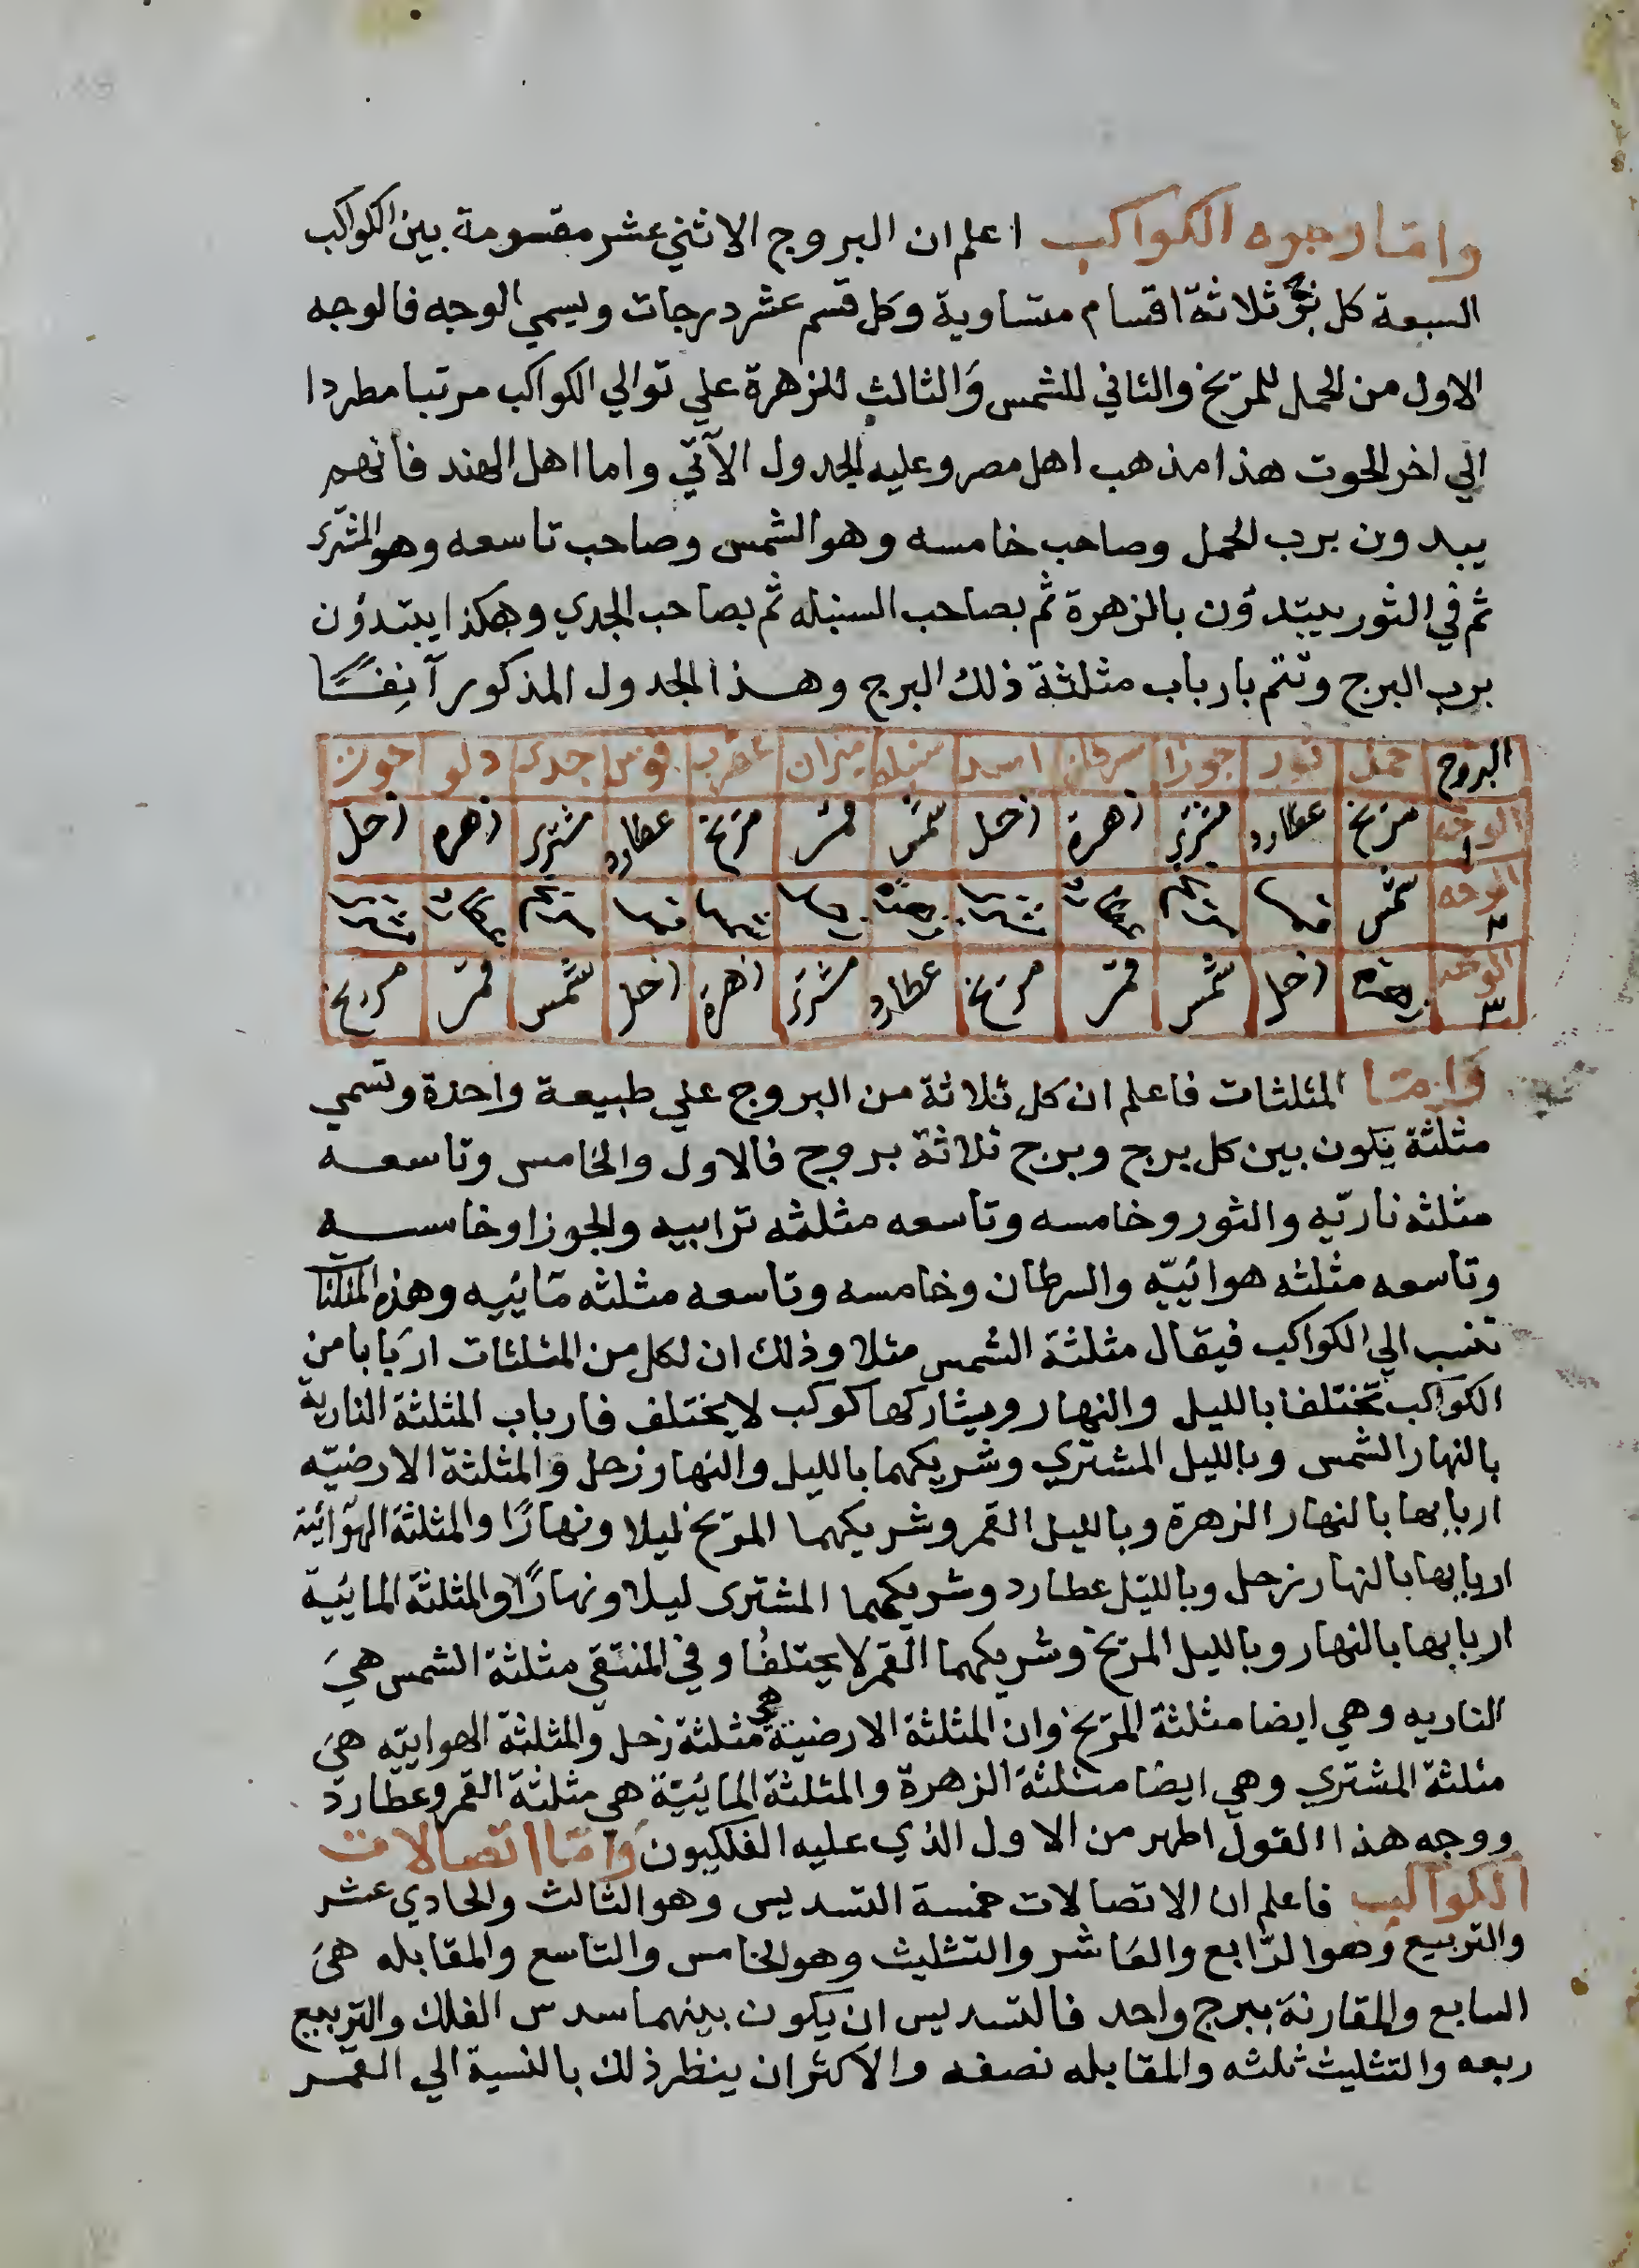 واما وجوه الكواكب اعلم ان البروج الاثني عشر مقسومة بين الكواكب
السبعة كل برج ثلاثة اقسام متساوية وكل قسم عشر درجات ويسمي الوجه فالوجه
الاول من الحمل للمريخ والثاني للشمس والثالث للزهرة علي توالي الكواكب مرتبا مطردا
الي اخر الحوت هذا مذهب اهل مصر وعليه الجدول الآتي واما اهل الهند فانهم
يبدون برب الحمل وصاحب خامسه وهو الشمس وصاحب تاسعه وهو المشترى
ثم في الثور يبتدؤن بالزهرة ثم بصاحب السنبله ثم بصاحب الجدي وهكذا يبتدؤن
برب البرج وتتم بارباب مثلثة ذلك البرج وهذا الجدول المذكور آنفًا
البروج حمل ثور جوزا سرطان اسد سنبله ميزان عقرب قوس جدى دلو حوت
الوجه ١ مريخ عطارد مشترى زهرة زحل شمس قمر مريخ عطارد مشترى زهره زحل
الوجه ٢ شمس قمر مريخ عطارد مشترى زهرة زحل شمس قمر مريخ عطارد مشترى
الوجه ٣ زهرة زحل شمس قمر مريخ عطارد مشترى زهرة زحل شمس قمر مريخ
وامتا المثلثات فاعلم ان كل ثلاثة من البروج علي طبيعة واحدة وتسمي
مثلثة يكون بين كل برج وبرج ثلاثة بروج فالاول والخامس وتاسعه
مثلثه ناريّه والثور وخامسه وتاسعه مثلثه ترابيه والجوزا وخامسه
وتاسعه مثلثه هوائييّه والسرطان وخامسه وتاسعه مثلثه مائييه وهذه المثلثات
تنسب الي الكواكب فيقال مثلثة الشمس مثلا وذلك ان لكل من المثلثات اربابا من
الكواكب تختلفا بالليل والنهار ويشاركها كوكب لا يختلف فارباب المثلثة النارية
بالنهار الشمس وبالليل المشتري وشريكهما بالليل والنهار زحل والمثلثة الارضيّه
اربابها بالنهار الزهرة وبالليل القمر وشريكهما المريخ ليلا ونهارًا والمثلثة الهوائية
اربابها بالنهار زحل وبالليل عطارد وشريكهما المشترى ليلا ونهارًا والمثلثة المائيية
اربابها بالنهار وبالليل المريخ وشريكهما القمر لا يختلفا وفي المنتقي مثلثة الشمس هي
الناريه وهي ايضا مثلثة المريخ وان المثلثة الارضية هي مثلثة زحل والمثلثة الهواييّه هي
مثلثة المشتري وهي ايضا مثلثة الزهرة والمثلثة المائييّة هي مثلثة القمر وعطارد
ووجه هذا القول اظهر من الاول الذي عليه الفلكيون وامّا اتصالات
الكواكب فاعلم ان الاتصالات خمسة التسديس وهو الثالث والحادي عشر
والتربيع وهو الرابع والعاشر والتثليث وهو الخامس والتاسع والمقابله هي
السابع والمقارنة ببرج واحد فالتسديس ان يكون بينهما سدس الفلك والتربيع
ربعه والتثليث ثلثه والمقابله نصفه والاكثر ان ينظر ذلك بالنسبة الي القمر